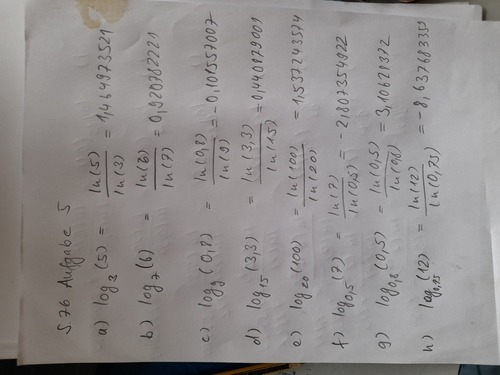 S.76 Aufgabe 5
a) log₃(5) = ln(5)/ln(3) = 1,464973521
b) log₇(6) = ln(6)/ln(7) = 0,920782221
c) log₉(0,8) = ln(0,8)/ln(9) = -0,101557007
d) log₁₅(3,3) = ln(3,3)/ln(15) = 0,440879001
e) log₂₀(100) = ln(100)/ln(20) = 1,537243574
f) log₀,₅(7) = ln(7)/ln(0,5) = -2,807354922
g) log₀,₈(0,5) = ln(0,5)/ln(0,8) = 3,10621372
h) (12) = ln(12)/ln(0,75) = -8,637683359